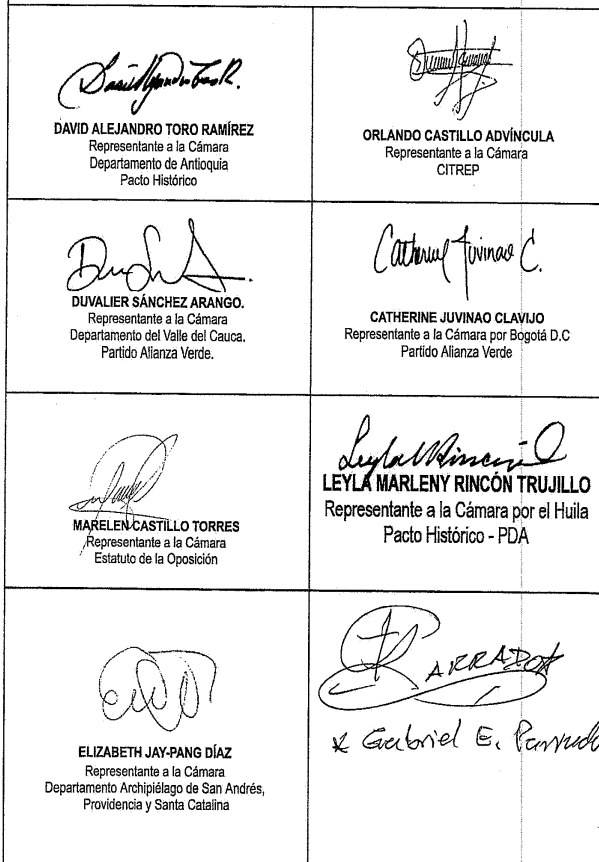 DAVID ALEJANDRO TORO RAMÍREZ
Representante a la Cámara
Departamento de Antioquia
Pacto Histórico
ORLANDO CASTILLO ADVÍNCULA
Representante a la Cámara
CITREP
DUVALIER SÁNCHEZ ARANGO.
Representante a la Cámara
Departamento del Valle del Cauca.
Partido Alianza Verde.
Catherine Juvinao C.
CATHERINE JUVINAO CLAVIJO
Representante a la Cámara por Bogotá D.C
Partido Alianza Verde
MARELEN CASTILLO TORRES
Representante a la Cámara
Estatuto de la Oposición
Leyla M Rincón
LEYLA MARLENY RINCÓN TRUJILLO
Representante a la Cámara por el Huila
Pacto Histórico - PDA
ELIZABETH JAY-PANG DÍAZ
Representante a la Cámara
Departamento Archipiélago de San Andrés,
Providencia y Santa Catalina
Gabriel E. Parrado